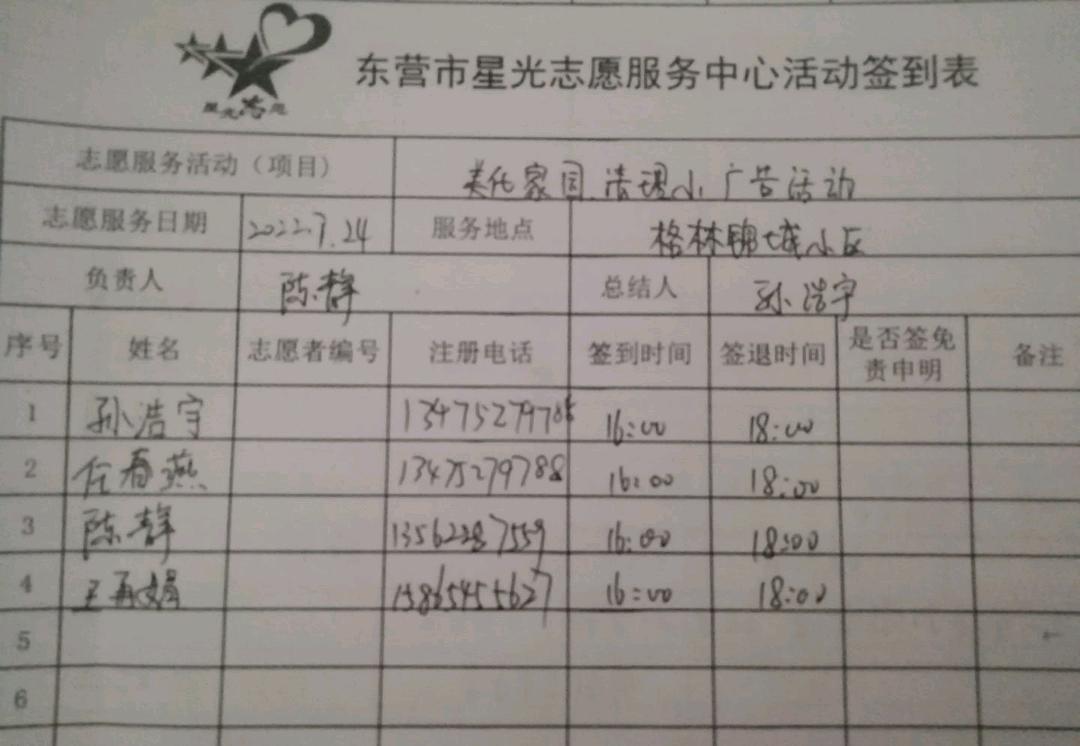 星光志愿
东营市星光志愿服务中心活动签到表
志愿服务活动（项目） 美化家园.清理小广告活动
志愿服务日期 2022.7.24 服务地点 格林锦城小区
负责人 陈静 总结人 孙浩宇
序号 姓名 志愿者编号 注册电话 签到时间 签退时间 是否签免责申明 备注
1 孙浩宇 16:00 18:00
2 任春燕 13475279788 16:00 18:00
3 陈静 16:00 18:00
4 王再娟 15865455627 16:00 18:00
5
6